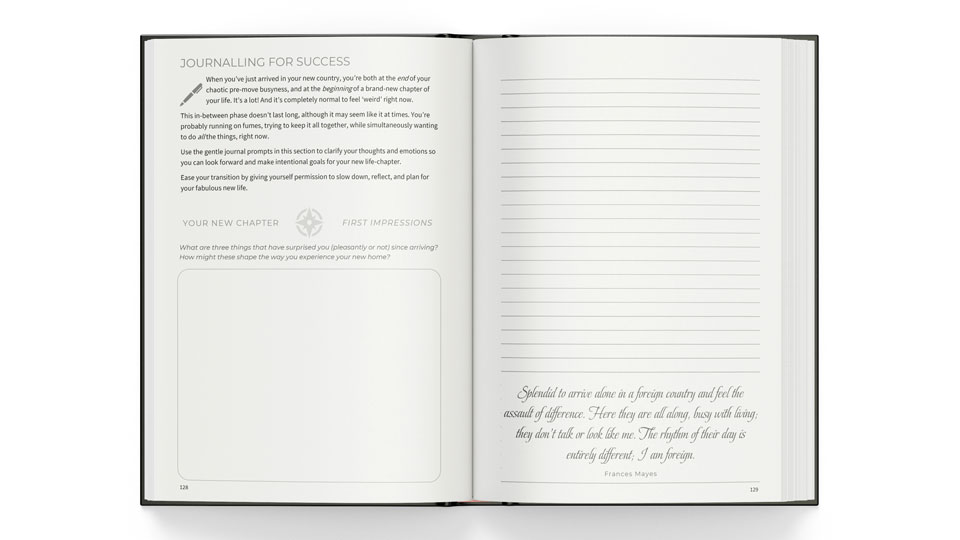 JOURNALLING FOR SUCCESS
When you've just arrived in your new country, you're both at the end of your
chaotic pre-move busyness, and at the beginning of a brand-new chapter of
your life. It's a lot! And it's completely normal to feel 'weird' right now.
This in-between phase doesn't last long, although it may seem like it at times. You're
probably running on fumes, trying to keep it all together, while simultaneously wanting
to do all the things, right now.
Use the gentle journal prompts in this section to clarify your thoughts and emotions so
you can look forward and make intentional goals for your new life-chapter.
Ease your transition by giving yourself permission to slow down, reflect, and plan for
your fabulous new life.
YOUR NEW CHAPTER FIRST IMPRESSIONS
What are three things that have surprised you (pleasantly or not) since arriving?
How might these shape the way you experience your new home?
128
Splendid to arrive alone in a foreign country and feel the
assault of difference. Here they are all along, busy with living;
they don't talk or look like me. The rhythm of their day is
entirely different; I am foreign.
Frances Mayes
129